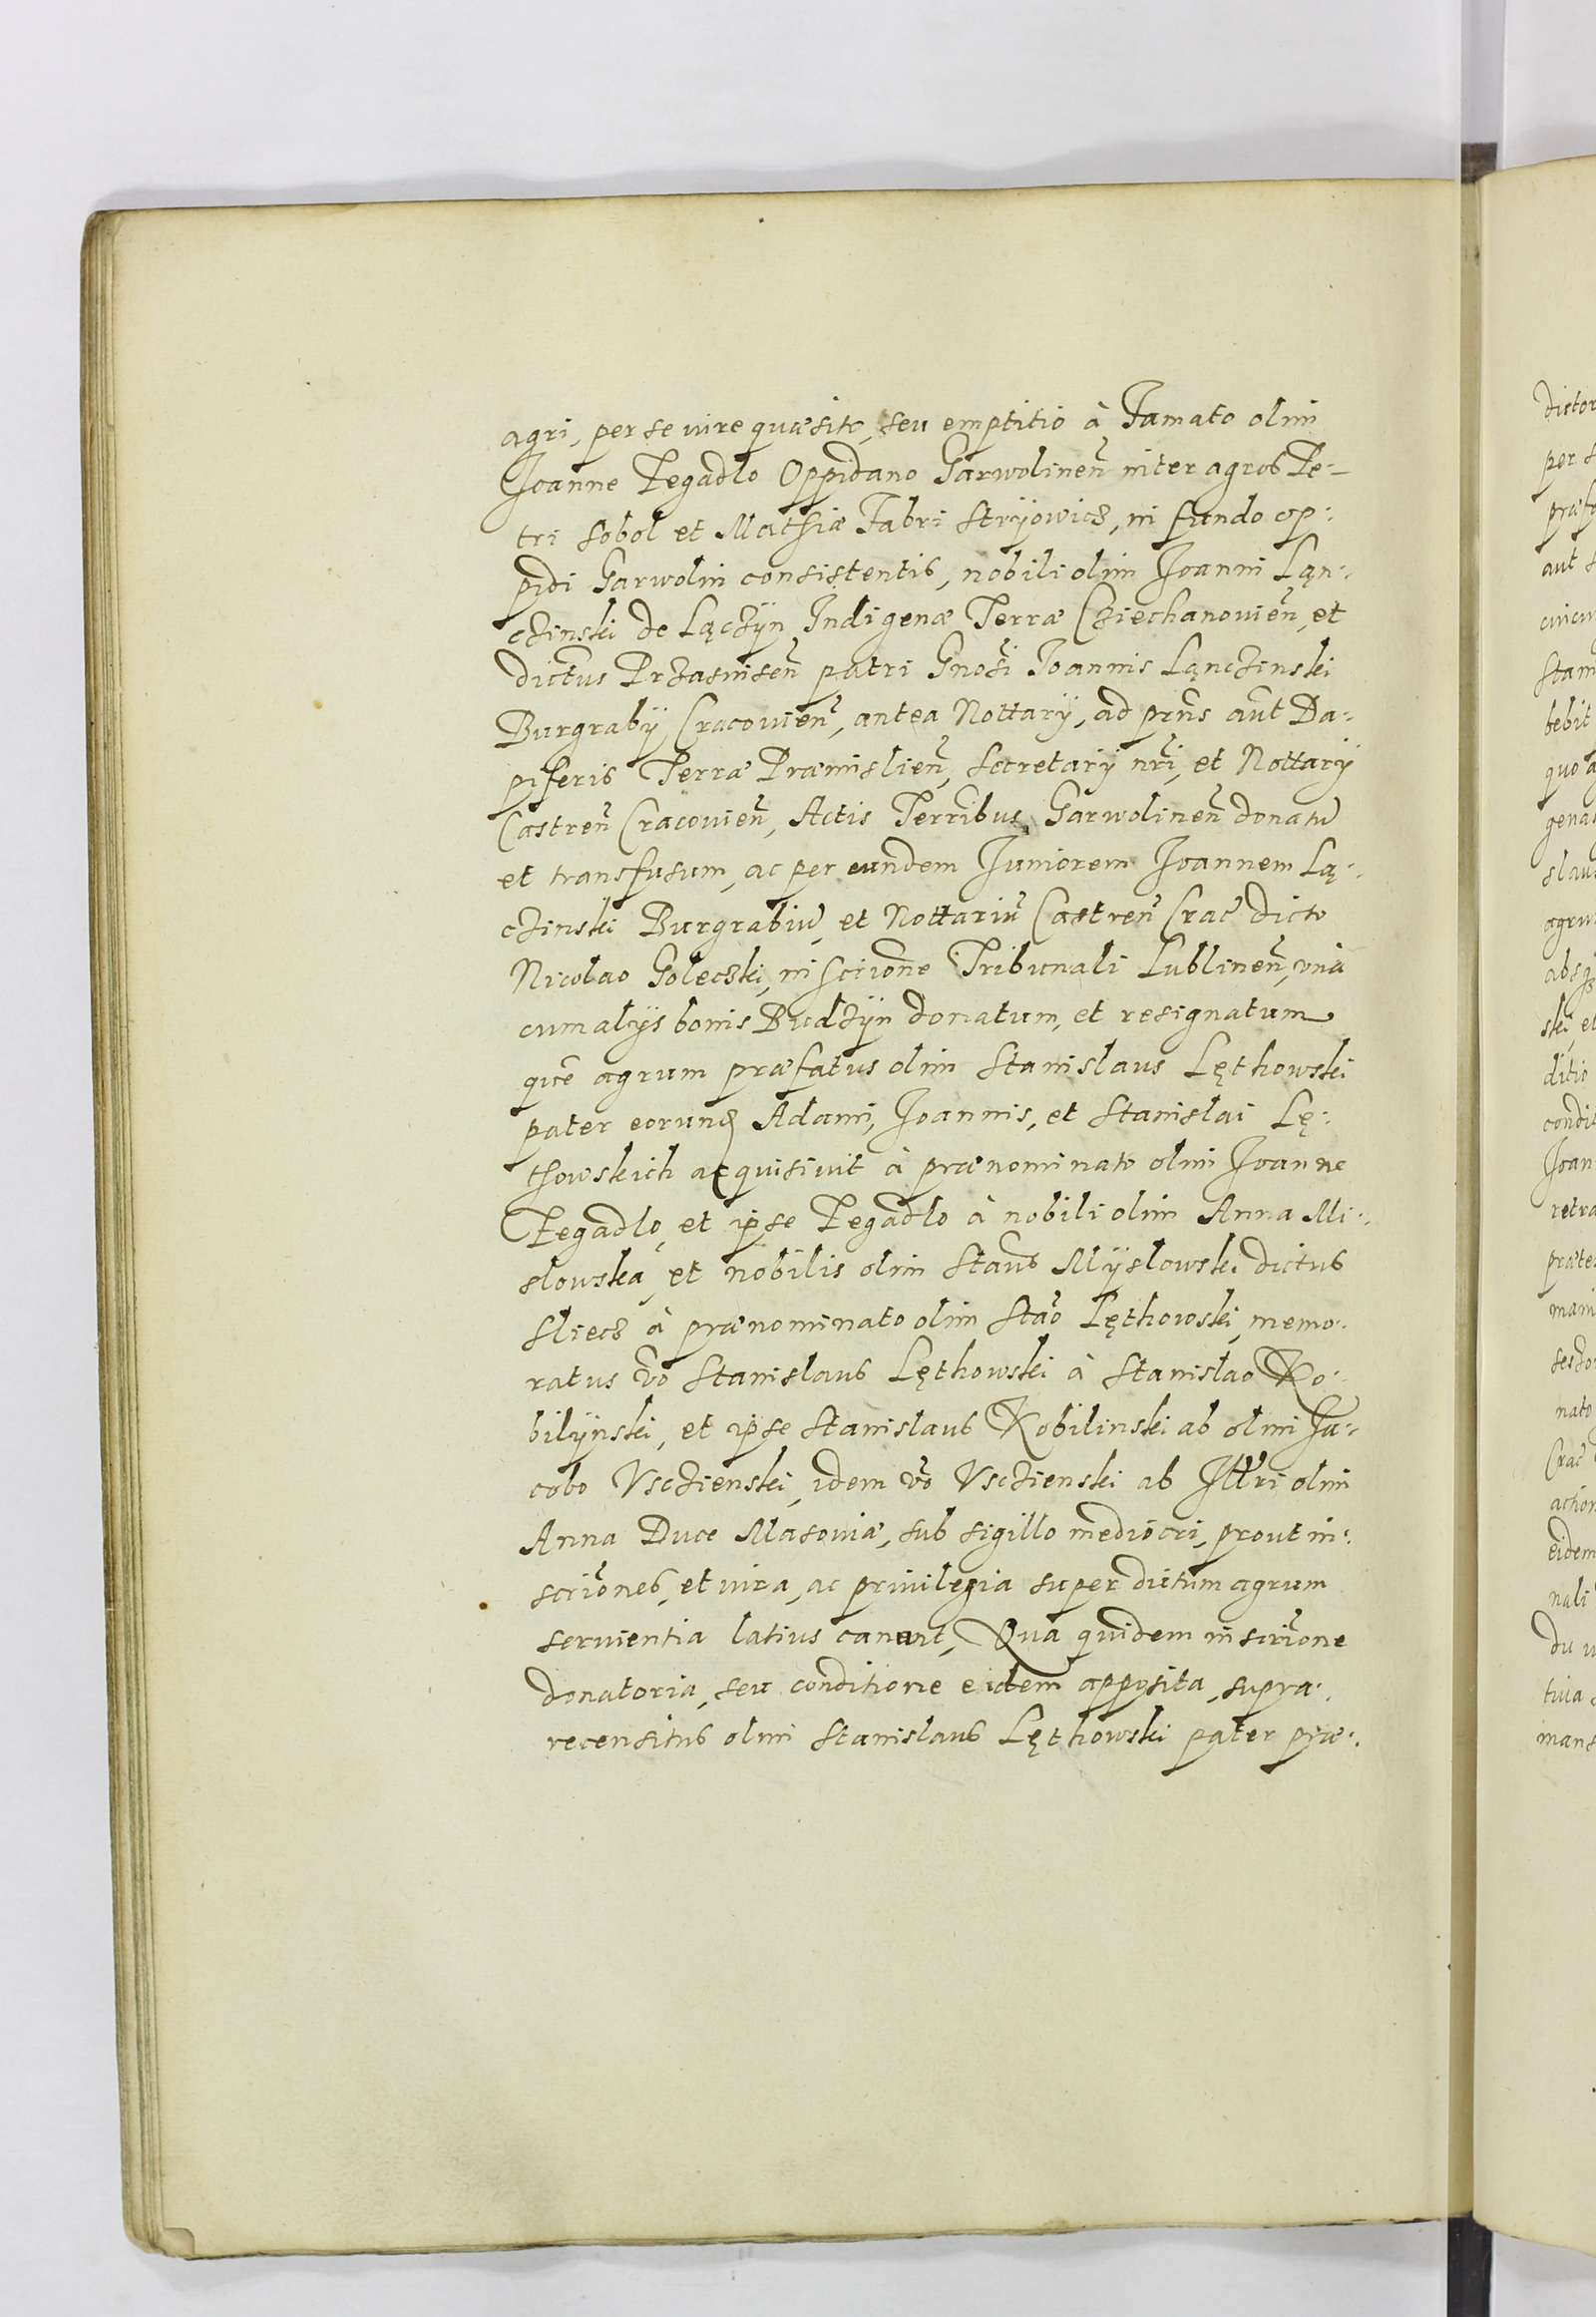 agri, per se iure quæsito, seu emptitio à Famato olim
Joanne Pegadlo Oppidano Garwolineñ inter agros Pe-
tri Sobol et Mathiæ Fabri Stryowicz, in fundo op:
pidi Garwolin consistentis, nobili olim Joanni Ląn:
czinski de Lączÿn Indigenæ Terræ Cziechanovieñ, et
dictus Przasniseñ patri Gnosi Joannis Ląnczinski
Burgrabÿ Cracovieñ, antea Nottarÿ, ad prñs aut Da:
piferis Terræ Præmislieñ, Secretarÿ nri, et Nottarÿ
Castreñ Cracovieñ, Actis Terribus Garwolineñ donatũ
et transfusum, ac per eundem Juniorem Joannem Lą:
czinski Burgrabiũ, et Nottariũ Castreñ Crac̃ dicto
Nicolao Goleczki, in scriõne Tribunali Lublineñ, unà
cum alÿs bonis Budzÿn donatum, et resignatum
quẽ agrum præfatus olim Stanislaus Lęthowski
pater eorund Adami, Joannis, et Stanislai Lę:
thowskich acquisivit à prænominato olim Joanne
Pegadlo, et ipse Pegadlo à nobili olim Anna Mi:
slowska, et nobilis olim Staũs Mÿslowski dictus
Sliecz à prænominato olim Stão Lęthowski, memo:
ratus võ Stanislaus Lęthowski à Stanislao Ko:
bilÿnski, et ipse Stanislaus Kobilinski ab olim Ja:
cobo Usczienski, idem võ Usczienski ab Illri olim
Anna Duce Masoviæ, sub sigillo mediocri, prout in:
scriões, et iura, ac privilegia super dictum agrum
servientia latius canunt, Qua quidem inscriõne
donatoria, seu conditione eidem apposita, supra:
recensitus olim Stanislaus Lęthowski pater præ:
dictor
per s
præfa
aut s
cuicun
Stani
bebit
quo a
genas
slaus
agrum
absq
ski et
ditio
condit
Joan
retra
præte
mani
sesdo
nato
Crac̃
action
eidem
nali
du
tuia
mans